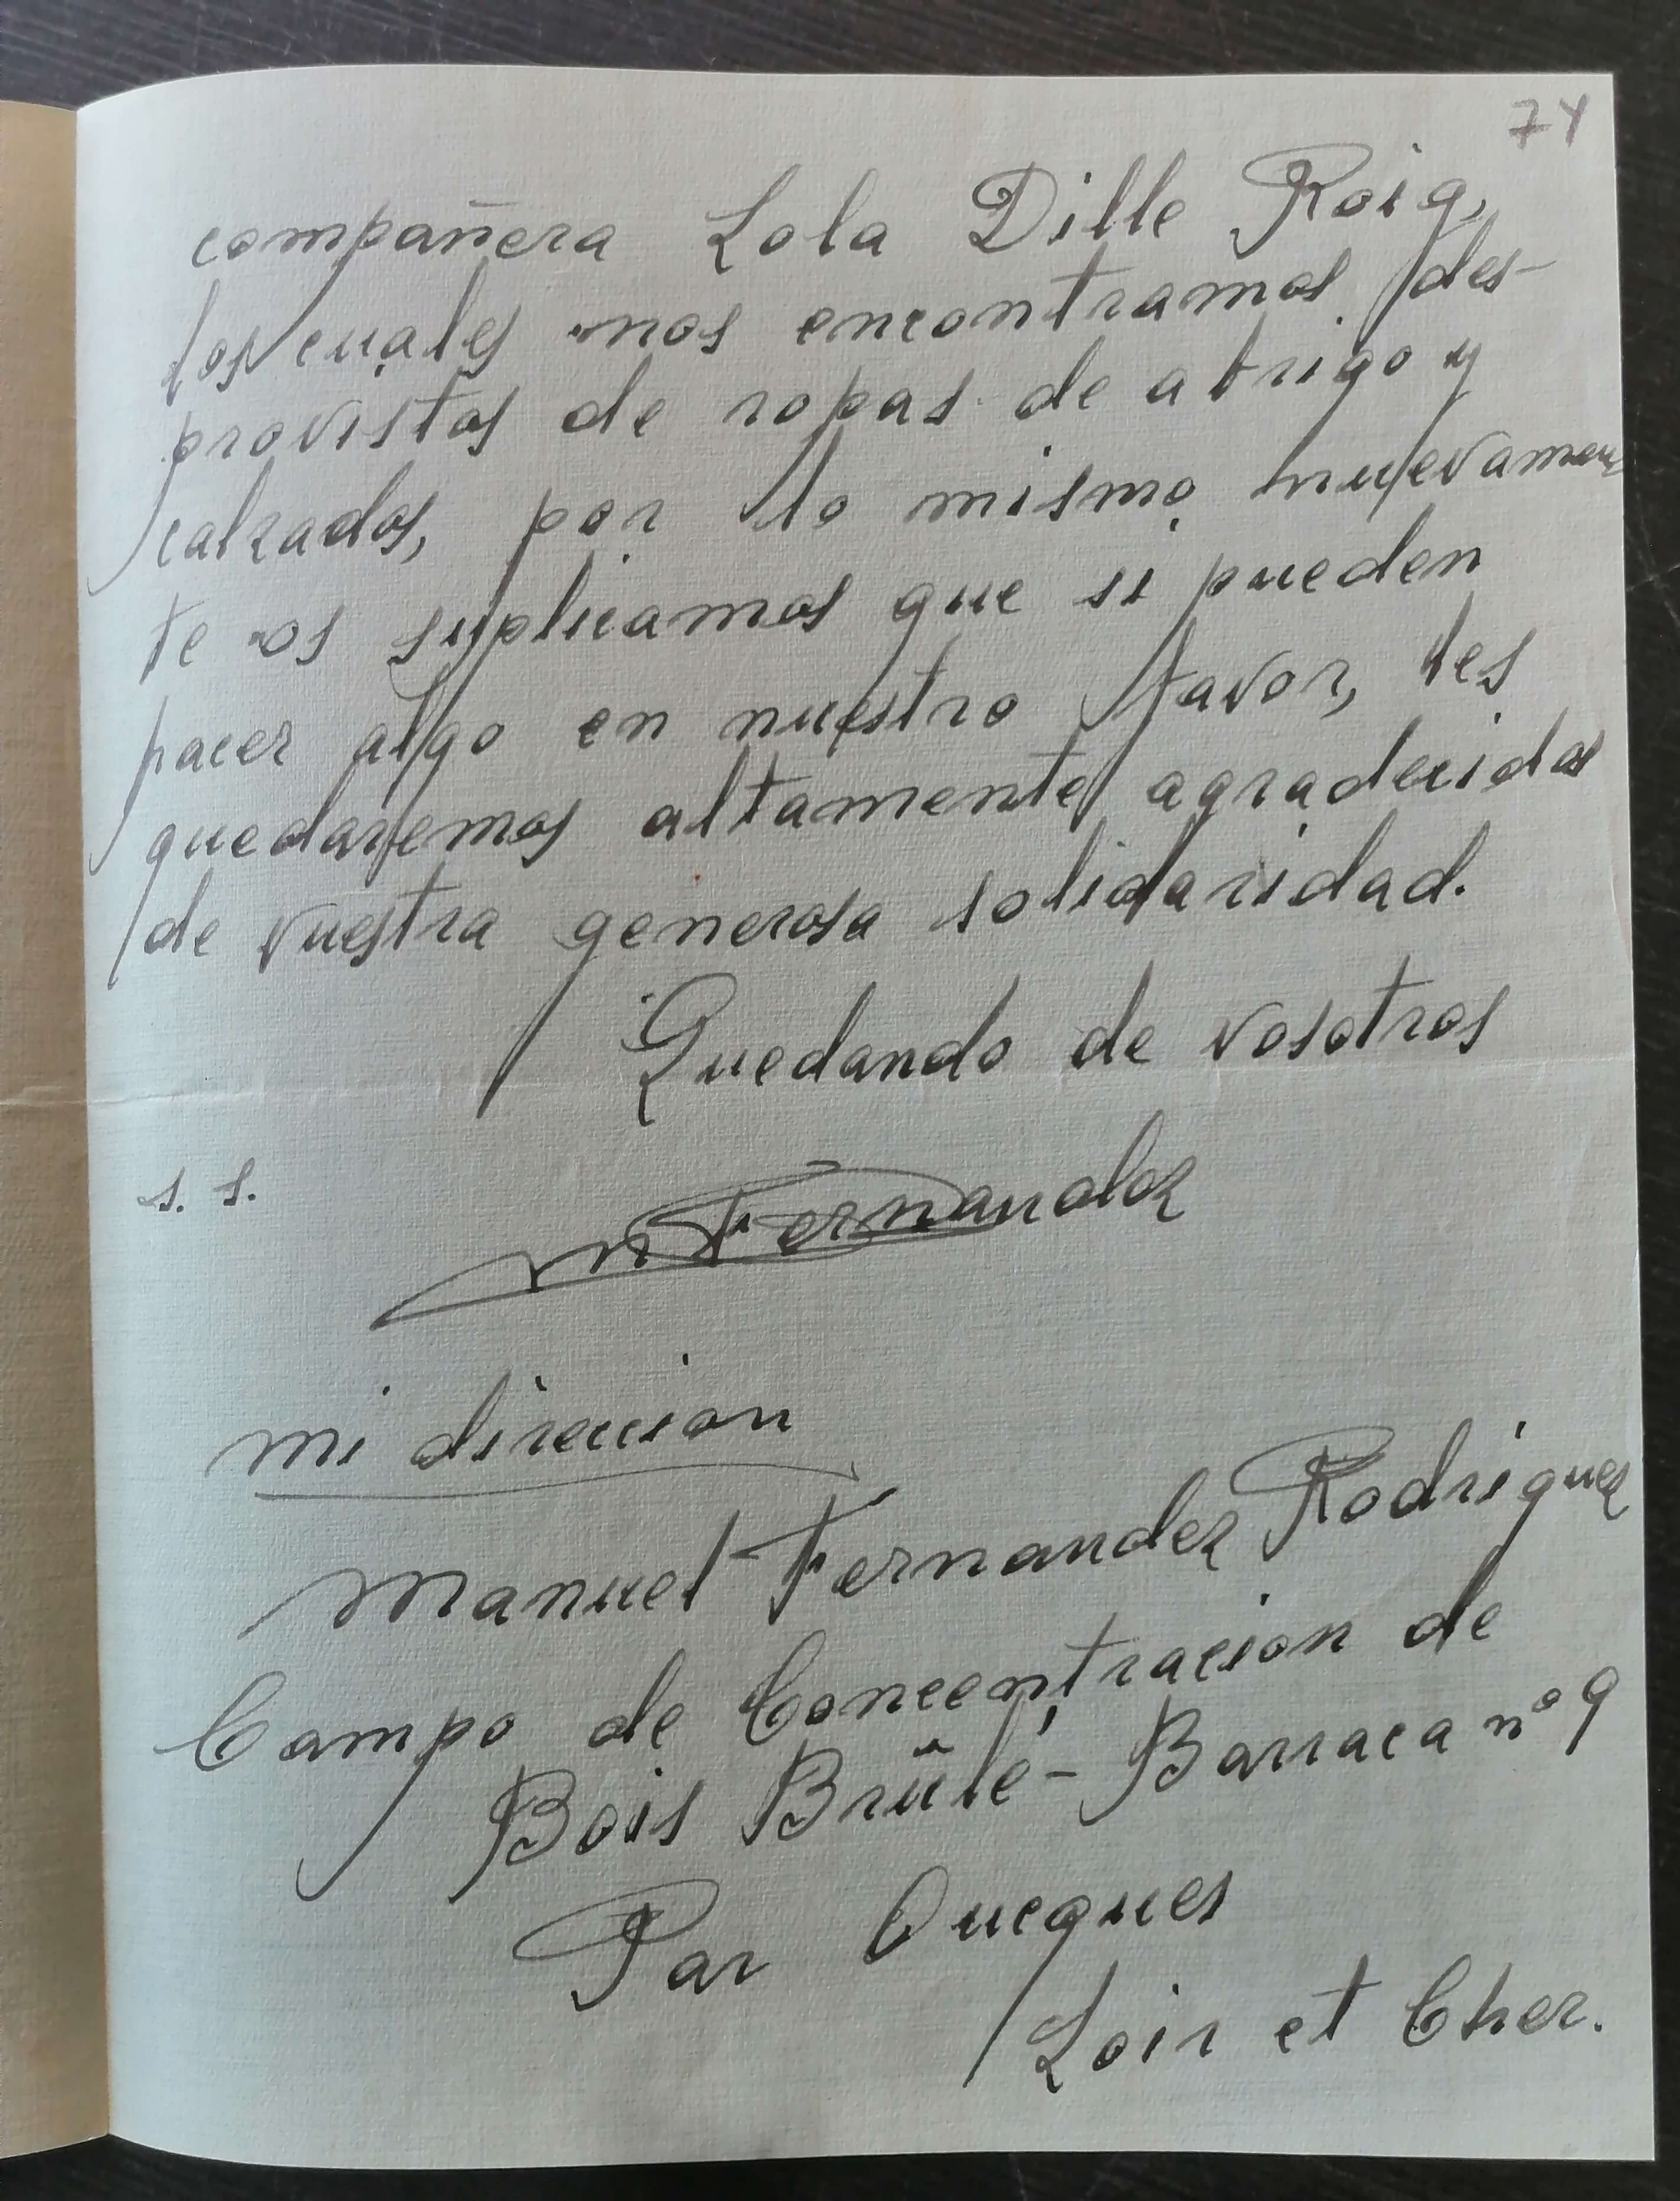 74
compañera Lola Dille Roig,
los cuales nos encontramos des-
provistos de ropas de abrigo y
calzados, por lo mismo nuevamen
te os suplicamos que si pueden
hacer algo en nuestro favor, les
quedaremos altamente agradecidos
de vuestra generosa solidaridad.
Quedando de vosotros
s. s.
M Fernandez
mi direccion
Manuel Fernandez Rodriguez
Campo de Concentracion de
Bois Brûlé - Barraca nº 9
Par Oucques
Loir et Cher.